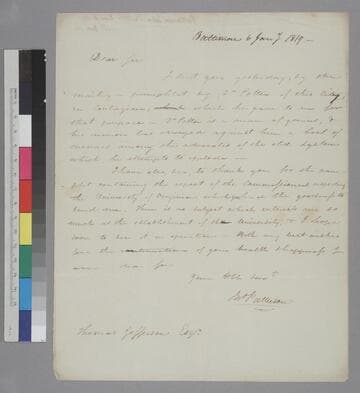 Baltimore 6 Jany 1819 —
Dear Sir
I sent you yesterday, by the
mail, a pamphlet by Dr Potter of this City,
on Contagion, which he gave to me for
that purpose — Dr Potter is a man of genius, &
his memoir has arrayed against him a host of
enemies among the advocates of the old system
which he attempts to explode —
I have also to thank you for the pam
phlet containing the report of the Commissioners respecting
the University of Virginia which you had the goodness to
send me. There is no subject which interests me so
much as the establishment of the University, & I hope
soon to see it in operation. With my best wishes
for the continuation of your health & happiness I
am Dear Sir
Your Obt Servt
Thomas Jefferson Esqr.